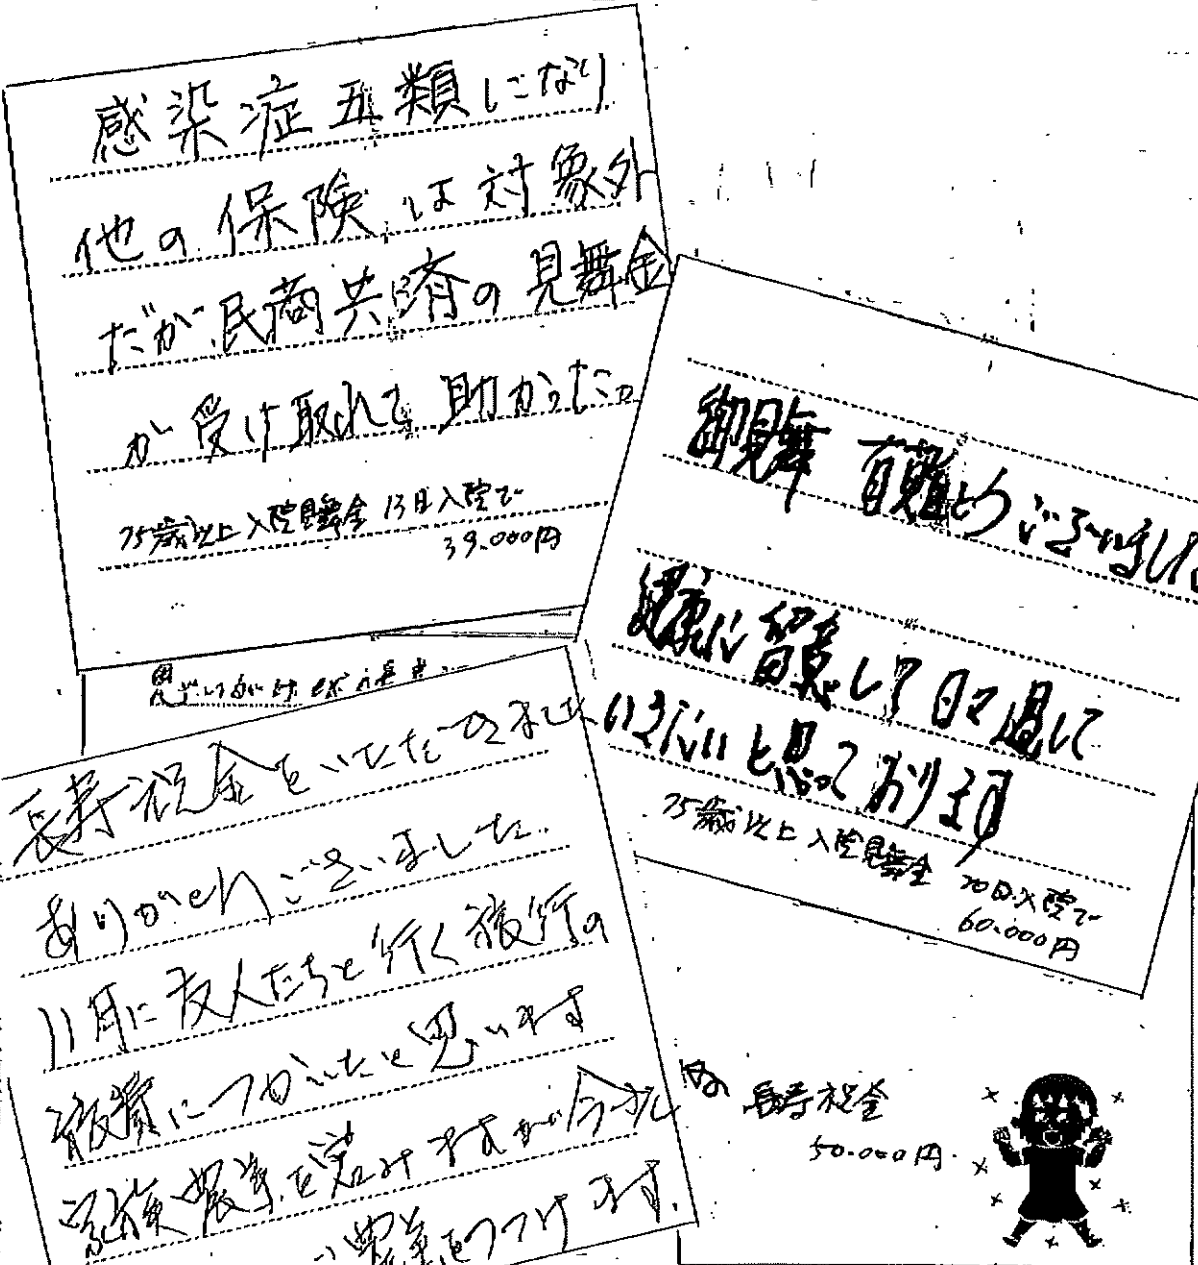 感染症五類になり
他の保険は対象外
だが民商共済の見舞金
が受け取れて助かった。
75歳以上入院見舞金 13日入院で
39.000円
御見舞 有難とうございました
健康に留意して日々過して
いきたいと思っております
75歳以上入院見舞金 20日入院で
60.000円
長寿祝金をいただきました
ありがとうございました
11月に友人たちと行く旅行の
旅費につかいたいと思います
家族農業を営みますが今
農業をつづけます。
長寿祝金
50.000円